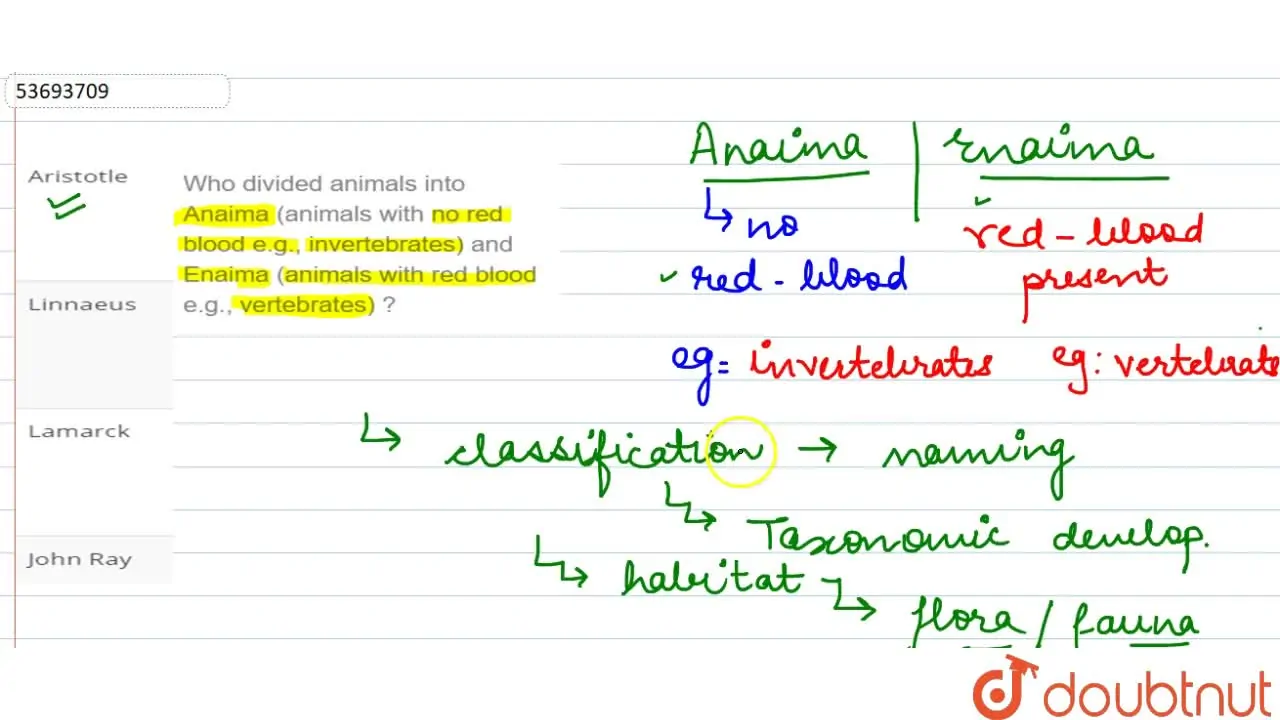 53693709
Aristotle
Linnaeus
Lamarck
John Ray
Who divided animals into
Anaima (animals with no red
blood e.g., invertebrates) and
Enaima (animals with red blood
e.g., vertebrates) ?
Anaima | Enaima
no
red - blood
red - blood
present
eg = invertebrates
eg : vertebrates
classification → naming
Taxonomic develop.
habitat
flora / fauna
doubtnut